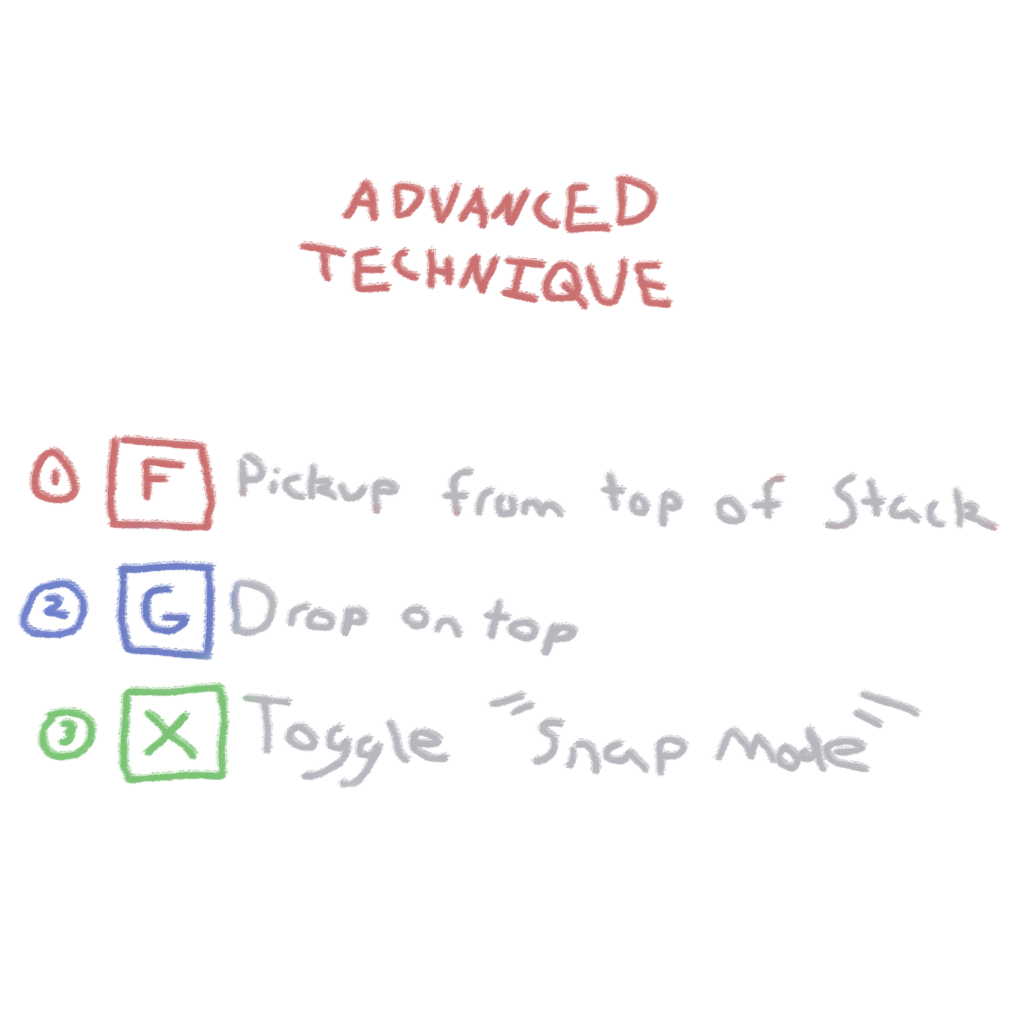 ADVANCED
TECHNIQUE
1 F Pickup from top of Stack
2 G Drop on top
3 X Toggle "Snap Mode"